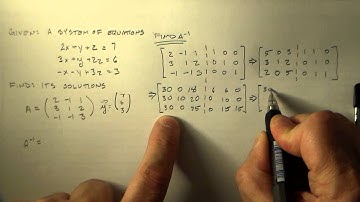 GIVEN: A SYSTEM OF EQUATIONS
2x - y + z = 7
3x + y + 2z = 6
-x - y + 3z = 3
FIND: ITS SOLUTIONS
A = (2 -1 1
3 1 2
-1 -1 3) y = (7
6
3)
A⁻¹ =
FIND A⁻¹
[2 -1 1 | 1 0 0
3 1 2 | 0 1 0
-1 -1 3 | 0 0 1]
⇒ [5 0 3 | 1 1 0
3 1 2 | 0 1 0
2 0 5 | 0 1 1]
⇒ [30 0 18 | 6 6 0
30 10 20 | 0 10 0
30 0 75 | 0 15 15]
⇒ [30